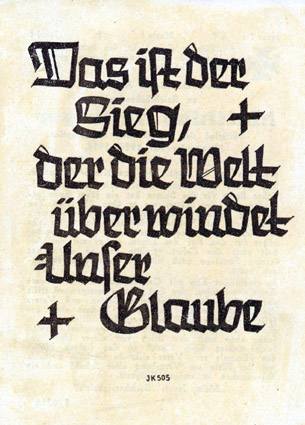 Das ist der
Sieg, +
der die Welt
überwindet
Unser
+ Glaube
JK505